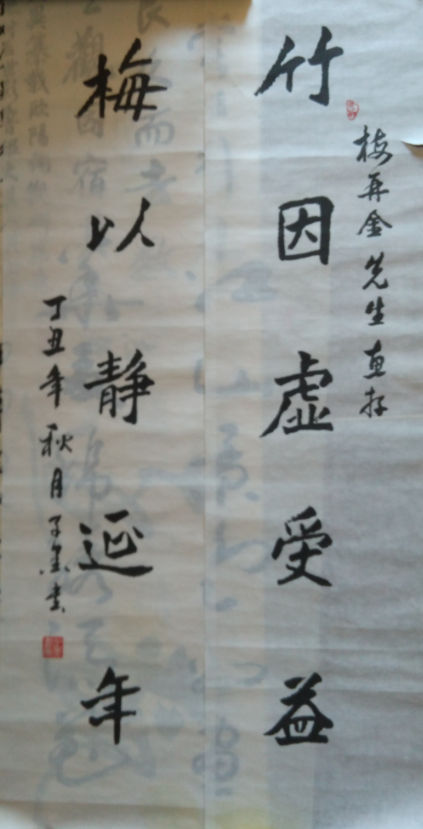 梅再金先生惠存
竹因虚受益
梅以静延年
丁丑年秋月